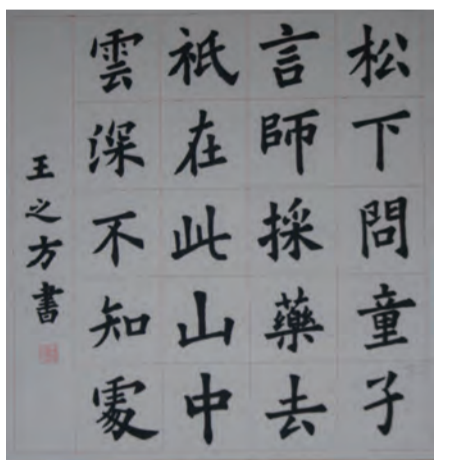 松下問童子
言師採藥去
祇在此山中
雲深不知處
王之方書